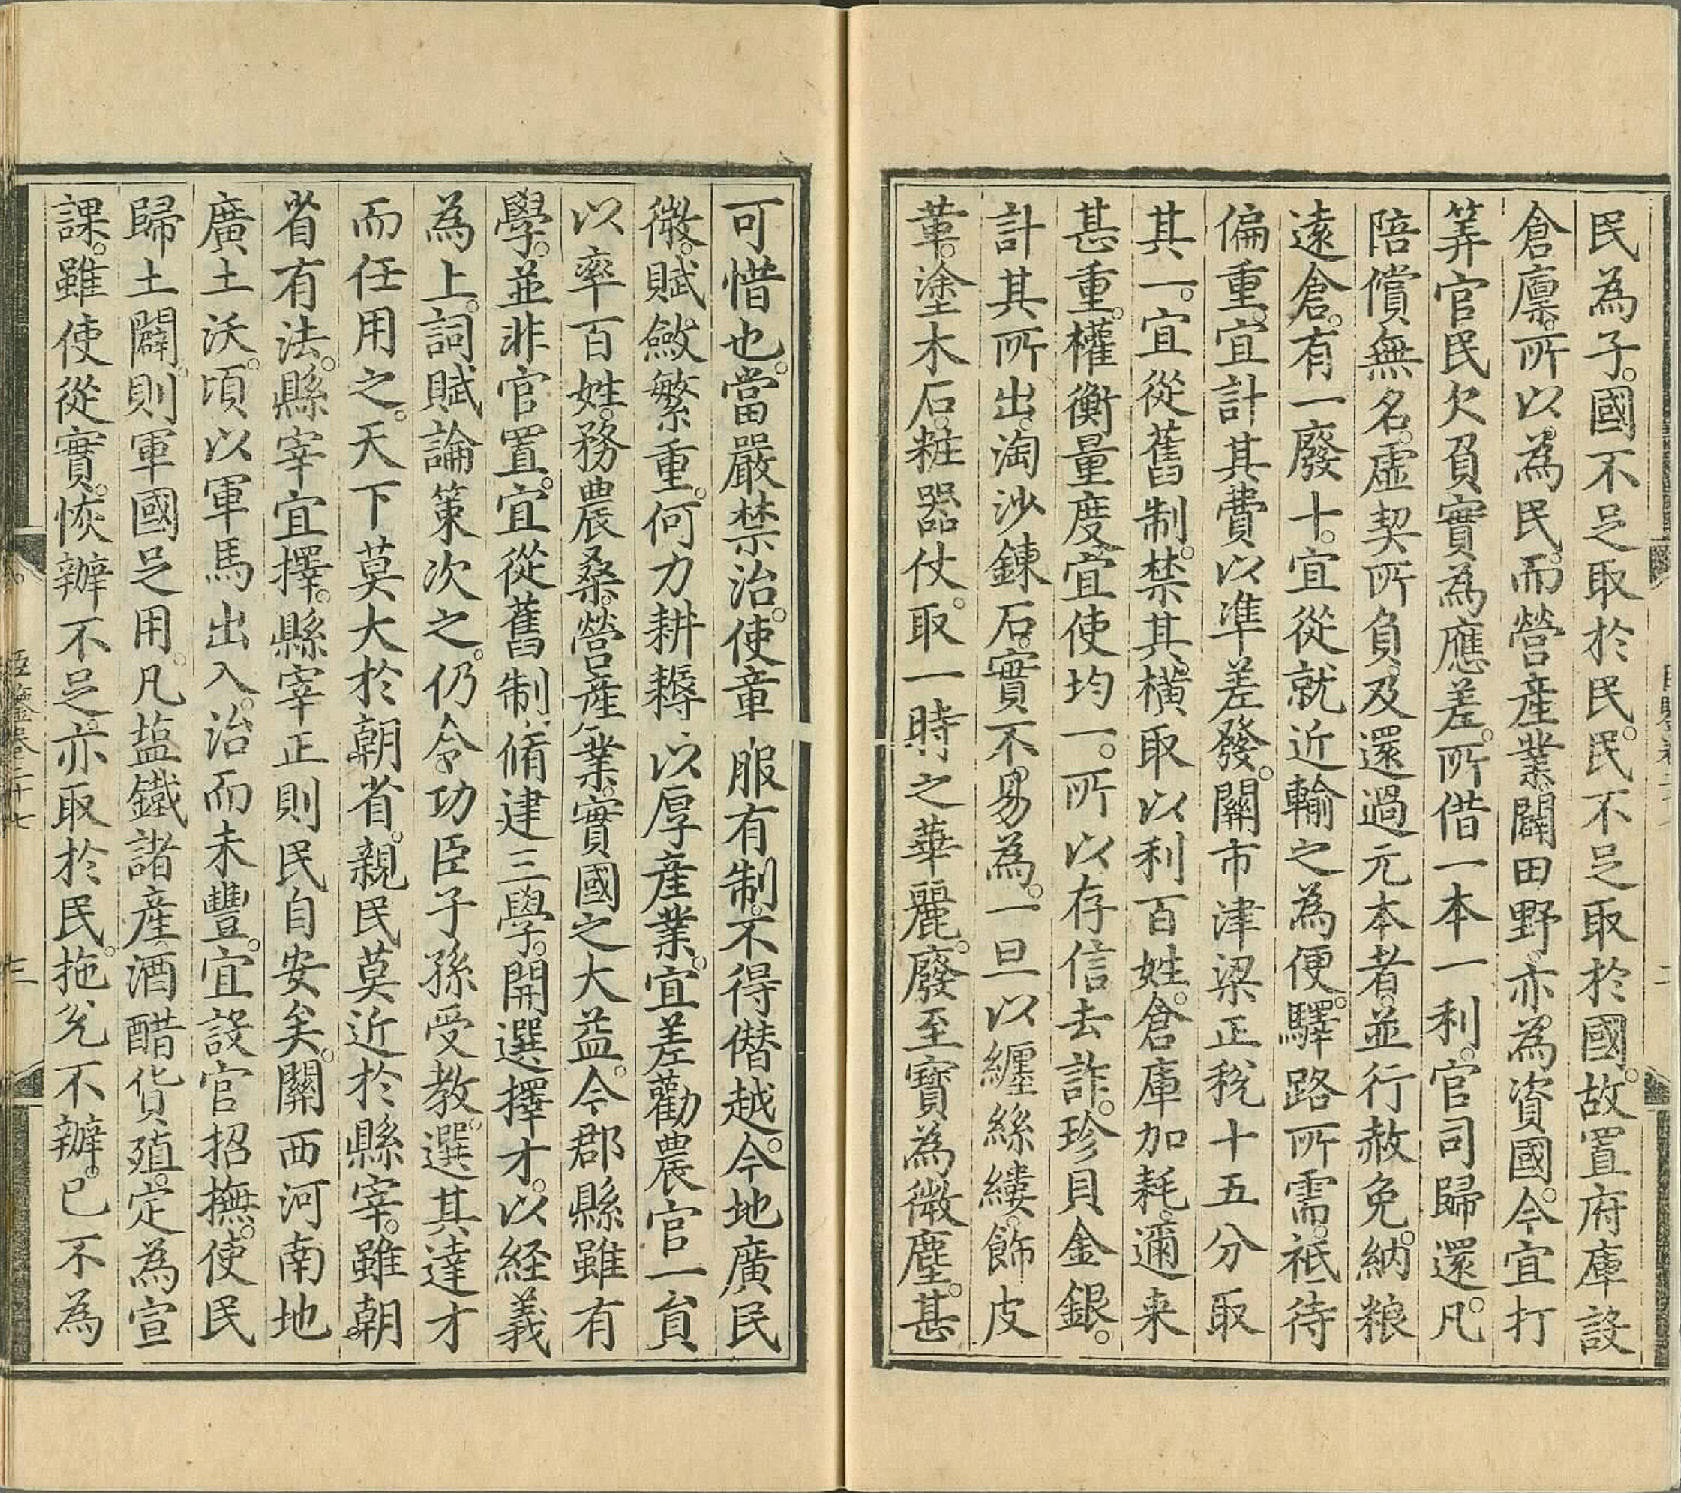 民為子。國不足取於民。民不足取於國。故置府庫設
倉廩。所以為民。而營産業。闢田野。亦為資國。今宜打
筭官民欠負。實為應差。所借一本一利。官司歸還。凡
陪償無名。虛契所負。及還過元本者。並行赦免。納粮
遠倉。有一廢十。宜從就近輸之為便。驛路所需。祗待
偏重。宜計其費以凖差發。關市津梁正稅十五分取
其一。宜從舊制。禁其橫取。以利百姓。倉庫加耗。邇来
甚重。權衡量度。宜使均一。所以存信去詐。珍貝金銀。
計其所出。淘沙鍊石。實不易為。一旦以纒絲縷。飾皮
革。塗木石。粧器仗。取一時之華麗。廢至寳為微塵。甚
可惜也。當嚴禁治。使章服有制。不得僭越。今地廣民
微。賦斂繁重。何力耕耨以厚産業。宜差勸農官一貟
以率百姓。務農桑。營産業。實國之大益。今郡縣雖有
學。並非官置。宜從舊制。脩建三學。開選擇才。以經義
為上。詞賦論策次之。仍令功臣子孫受教。選其達才
而任用之。天下莫大於朝省。親民莫近於縣宰。雖朝
省有法。縣宰宜擇。縣宰正則民自安矣。關西河南地
廣土沃。頃以軍馬出入。治而未豐。宜設官招撫。使民
歸土闢。則軍國足用。凡塩鐵諸産。酒醋貨殖。定為宣
課。雖使從實。恢辦不足。亦取於民。拖兊不辦。已不為